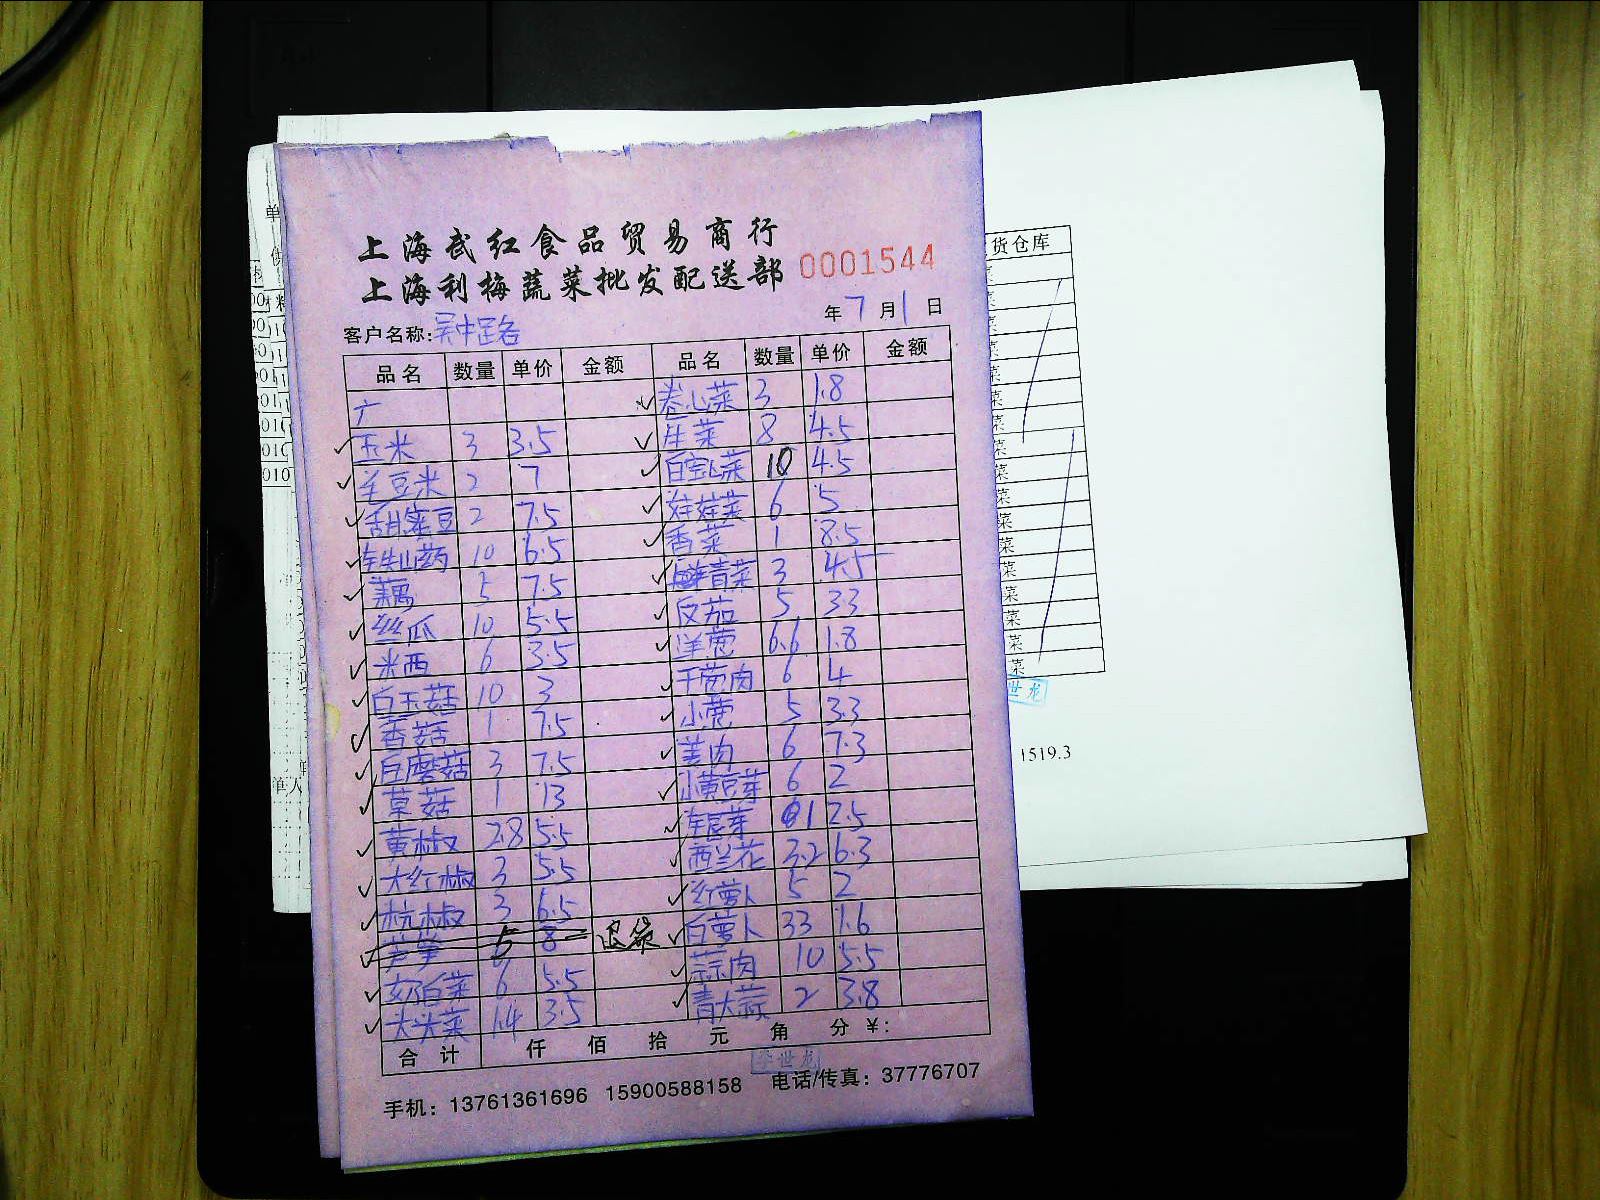 上海武红食品贸易商行
上海利梅蔬菜批发配送部 0001544
年 7 月 1 日
客户名称:吴中路
品名 数量 单价 金额 品名 数量 单价 金额
卷心菜 3 1.8
玉米 3 3.5 生菜 8 4.5
毛豆米 2 7 白宝心菜 10 4.5
胡豆 2 7.5 娃娃菜 6 5
铁山药 10 6.5 香菜 1 8.5
藕 5 7.5 青菜 3 4.5
丝瓜 10 5.5 反茄 5 3.3
米西 6 3.5 洋葱 6.6 1.8
白玉菇 10 3 干葱肉 6 4
香菇 1 7.5 小葱 5 3.3
白蘑菇 3 7.5 姜肉 6 7.3
草菇 1 13 小黄豆芽 6 2
黄椒 2.8 5.5 芽 1 2.5
大红椒 3 5.5 西兰花 3.2 6.3
杭椒 3 6.5 红萝卜 5 2
芦笋 5 8 退货 白萝卜 33 1.6
奶白菜 6 5.5 蒜肉 10 5.5
大头菜 14 3.5 青大蒜 2 3.8
合计 仟 佰 拾 元 角 分 ¥:
李世龙
手机: 13761361696 15900588158 电话/传真: 37776707
货仓库
菜
菜
菜
菜
菜
菜
菜
菜
菜
菜
世龙
1519.3